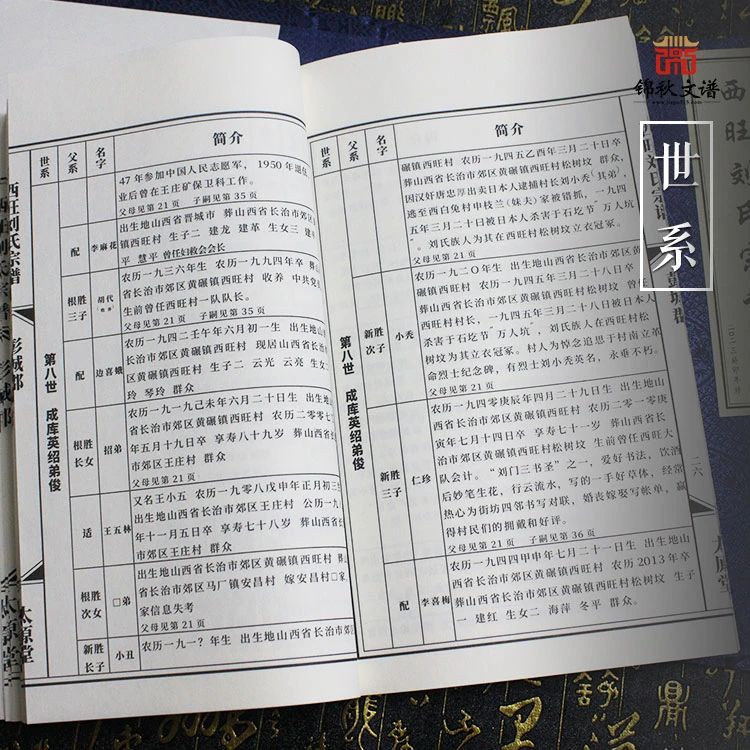 锦秋文谱
世系
西旺刘氏宗谱
彭城郡
太原堂
世系
父系
名字
简介
第八世 成库英绍弟俊
47年参加中国人民志愿军,1950年退伍
业后曾在王庄矿保卫科工作。
父母见第21页 子嗣见第35页
配
李麻花
出生地山西省晋城市 葬山西省长治市郊区黄
碾镇西旺村 生子二 建龙 建革 生女三 建
平 慧平 曾任妇救会会长
根胜
三子
胡代
农历一九三六年生 出生地山西省长治市
省长治市郊区黄碾镇西旺村 收养 中共党
生前曾任西旺村一队队长。
父母见第21页 子嗣见第35页
配
边喜娥
农历一九四二壬午年六月初一生 出生地
长治市郊区黄碾镇西旺村 现居山西省
区黄碾镇西旺村 生子二 云光 云亮 生女
玲 琴玲 群众
根胜
长女
招弟
农历一九一九己未年六月二十日生 出生地
西省长治市郊区黄碾镇西旺村 农历二零零七
年五月十九日卒 享寿八十九岁 葬山西省
市郊区王庄村 群众
父母见第21页
适
王五林
又名王小五 农历一九零八戊申年正月初三
出生地山西省长治市郊区王庄村 公历一九
年十一月五日卒 享寿七十八岁 葬山西省
市郊区王庄村 群众
根胜
次女
□弟
出生地山西省长治市郊区黄碾镇西旺村 葬山
省长治市郊区马厂镇安昌村 嫁安昌村□家
家信息失考
父母见第21页
新胜
长子
小丑
农历一九一?年生 出生地山西省长治市郊区
世系
父系
名字
简介
第八世 成库英绍弟俊
碾镇西旺村 农历一九四五乙酉年三月二十日卒
葬山西省长治市郊区黄碾镇西旺村松树坟 群众,
因汉奸唐忠厚出卖日本人逮捕村长刘小秃(其弟),
逃至西白兔村申枝兰(妹夫)家被错抓,一九四
五年三月二十日被日本人杀害于石圪节“万人坑
”。刘氏族人为其在西旺村松树坟立衣冠冢。
父母见第21页
新胜
次子
小秃
农历一九二〇年生 出生地山西省长治市郊区黄
碾镇西旺村 农历一九四五年三月二十八日卒
葬山西省长治市郊区黄碾镇西旺村松树坟 生前
西旺村村长,一九四五年三月二十八日被日本人
杀害于石圪节“万人坑”,刘氏族人在西旺村松
树坟为其立衣冠冢。村人为悼念追思于村南立革
命烈士纪念碑,有烈士刘小秃英名,永垂不朽。
父母见第21页
新胜
三子
仁珍
农历一九四零庚辰年四月二十九日生 出生地山
西省长治市郊区黄碾镇西旺村 农历二零一零庚
寅年七月十四日卒 享寿七十一岁 葬山西省长
治市郊区黄碾镇西旺村松树坟 生前曾任西旺大
队会计。“刘门三书圣”之一,爱好书法,饮酒
后妙笔生花,行云流水,写的一手好草体,经常
热心为街坊四邻书写对联、婚丧嫁娶写帐单,赢
得村民们的拥戴和好评。
父母见第21页 子嗣见第36页
配
李喜梅
农历一九四四甲申年七月二十一日生 出生地山
西省长治市郊区黄碾镇西旺村 农历2013年卒
葬山西省长治市郊区黄碾镇西旺村松树坟 生子
一 建红 生女二 海萍 冬平 群众。
二六
太原堂